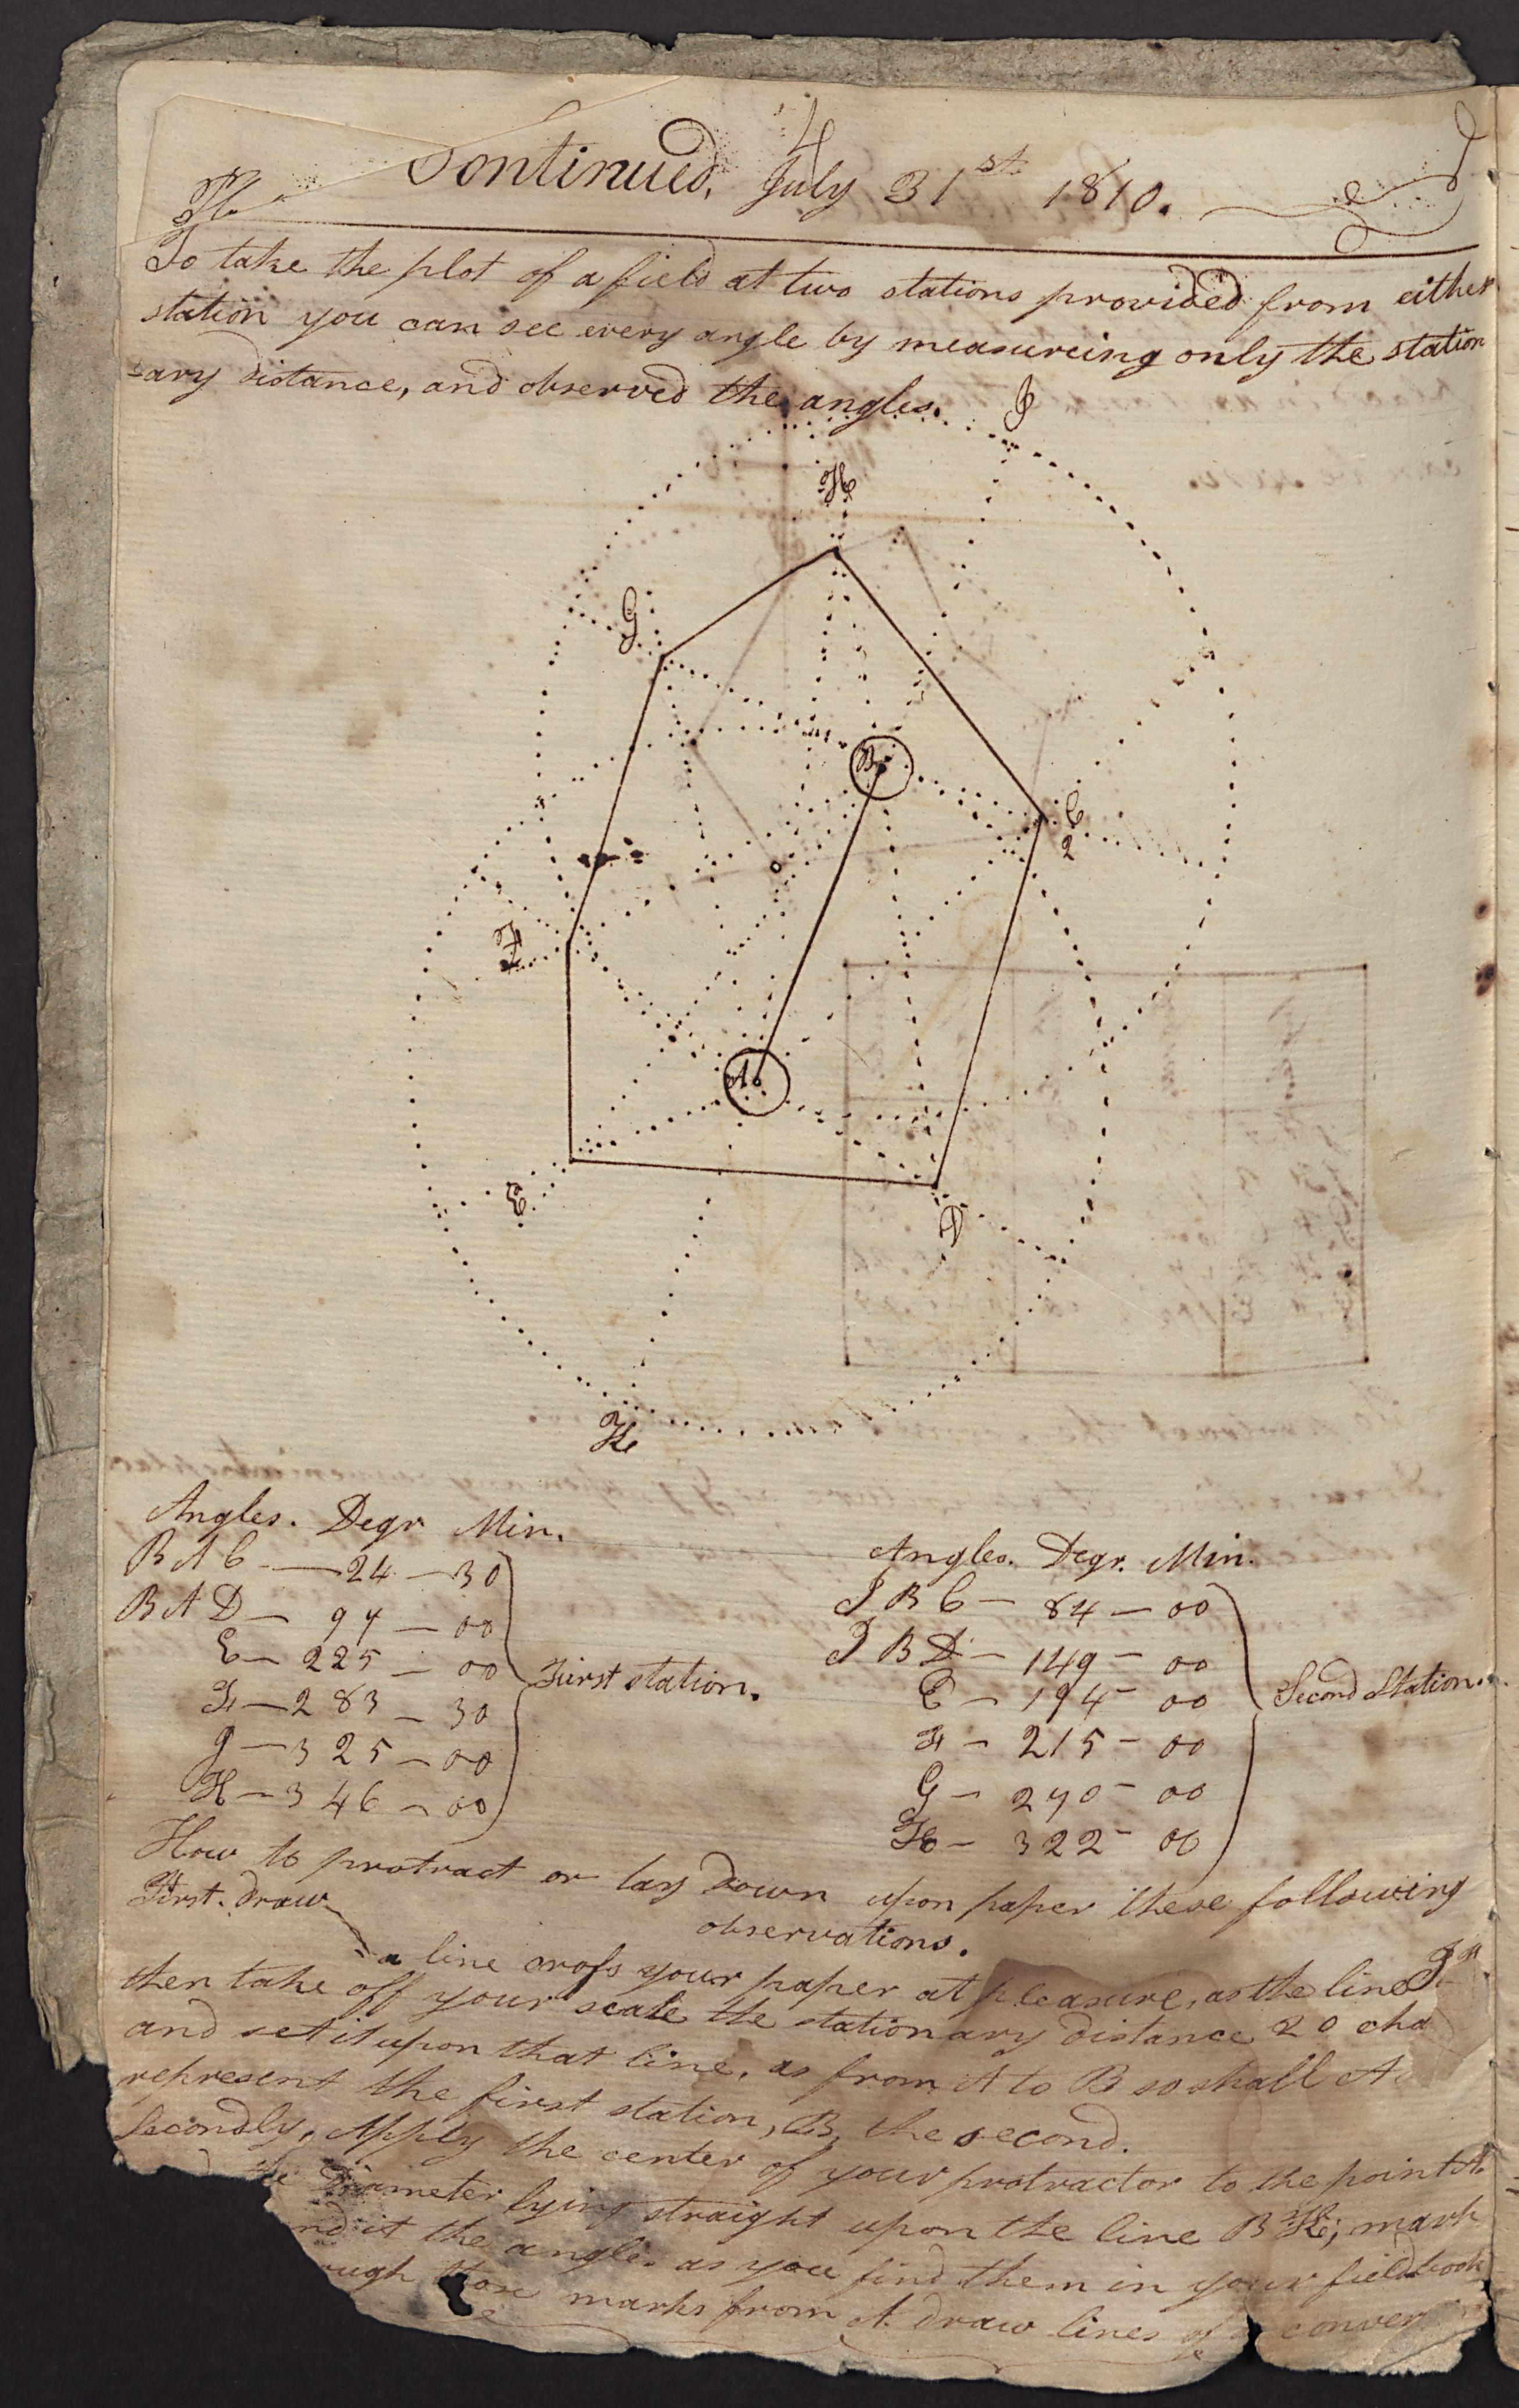 4
Continued, July 31st 1810.
To take the plot of a field at two stations provided from either
station you can see every angle by measureing only the station
=ary distance, and observed the angles.
I
H
G
B
C
2
F
A
E
D
K
Angles. Degr Min.
BAC — 24 — 30
BAD — 97 — 00
E — 225 — 00
F — 283 — 30
g — 325 — 00
H — 346 — 00
First station.
Angles. Degr. Min.
IBC — 84 — 00
IBD — 149 — 00
E — 194 — 00
F — 215 — 00
G — 270 — 00
H — 322 — 00
Second Station.
How to protract or lay down upon paper these following
observations.
First. draw
a line cross your paper at pleasure, as the line I K
then take off your scale the stationary distance 20 cha
and set it upon that line, as from A to B so shall A
represent the first station, B, the second.
Secondly, Apply the center of your protractor to the point A.
the Diameter lying straight upon the line B K; mark
it the angles as you find them in your field book
ough those marks from A. draw lines of conven